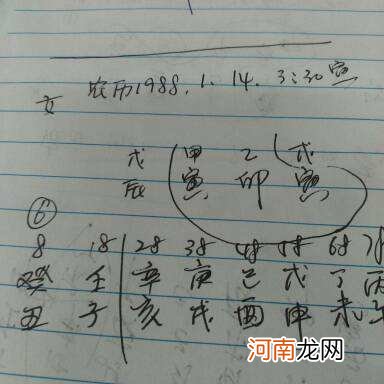 农历1988.1.14.3:30寅
女
戊 甲 乙 戊
辰 寅 卯 寅
⑥
8 18 28 38 48 58 68 78
癸 壬 辛 庚 己 戊 丁 丙
丑 子 亥 戌 酉 申 未 午
iiNiNi.NET